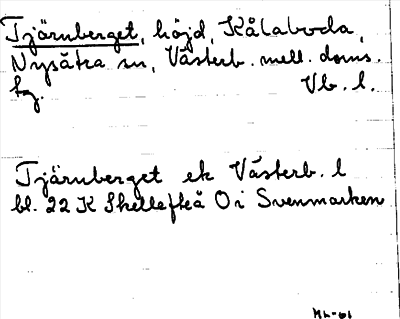 Tjärnberget, höjd, Kålaboda,
Nysätra sn, Västerb. mell. doms.
tg. Vb. l.
Tjärnberget ek Västerb. l
bl. 22 K Skellefteå O i Svenmarken